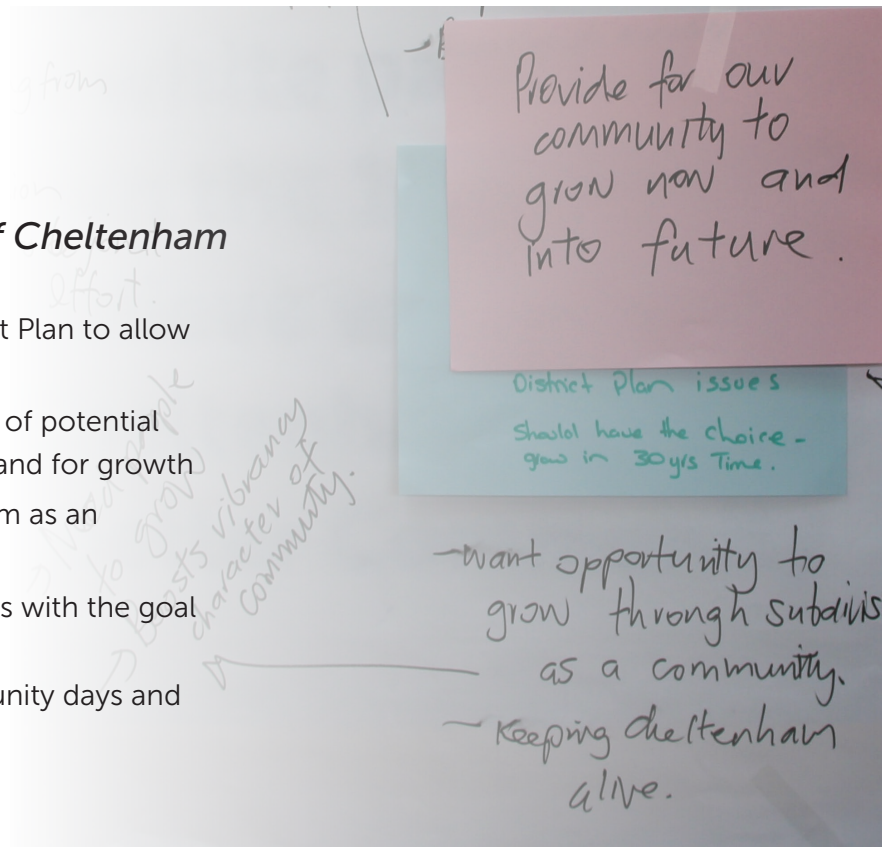 f Cheltenham
t Plan to allow
of potential
and for growth
m as an
s with the goal
unity days and
from
an
effort.
Need people
to grow
Boosts vibrancy
character of
community.
Provide for our
community to
grow now and
into future.
District Plan issues
Should have the choice -
grow in 30yrs Time.
- want opportunity to
grow through subdivis
as a community.
- Keeping cheltenham
alive.